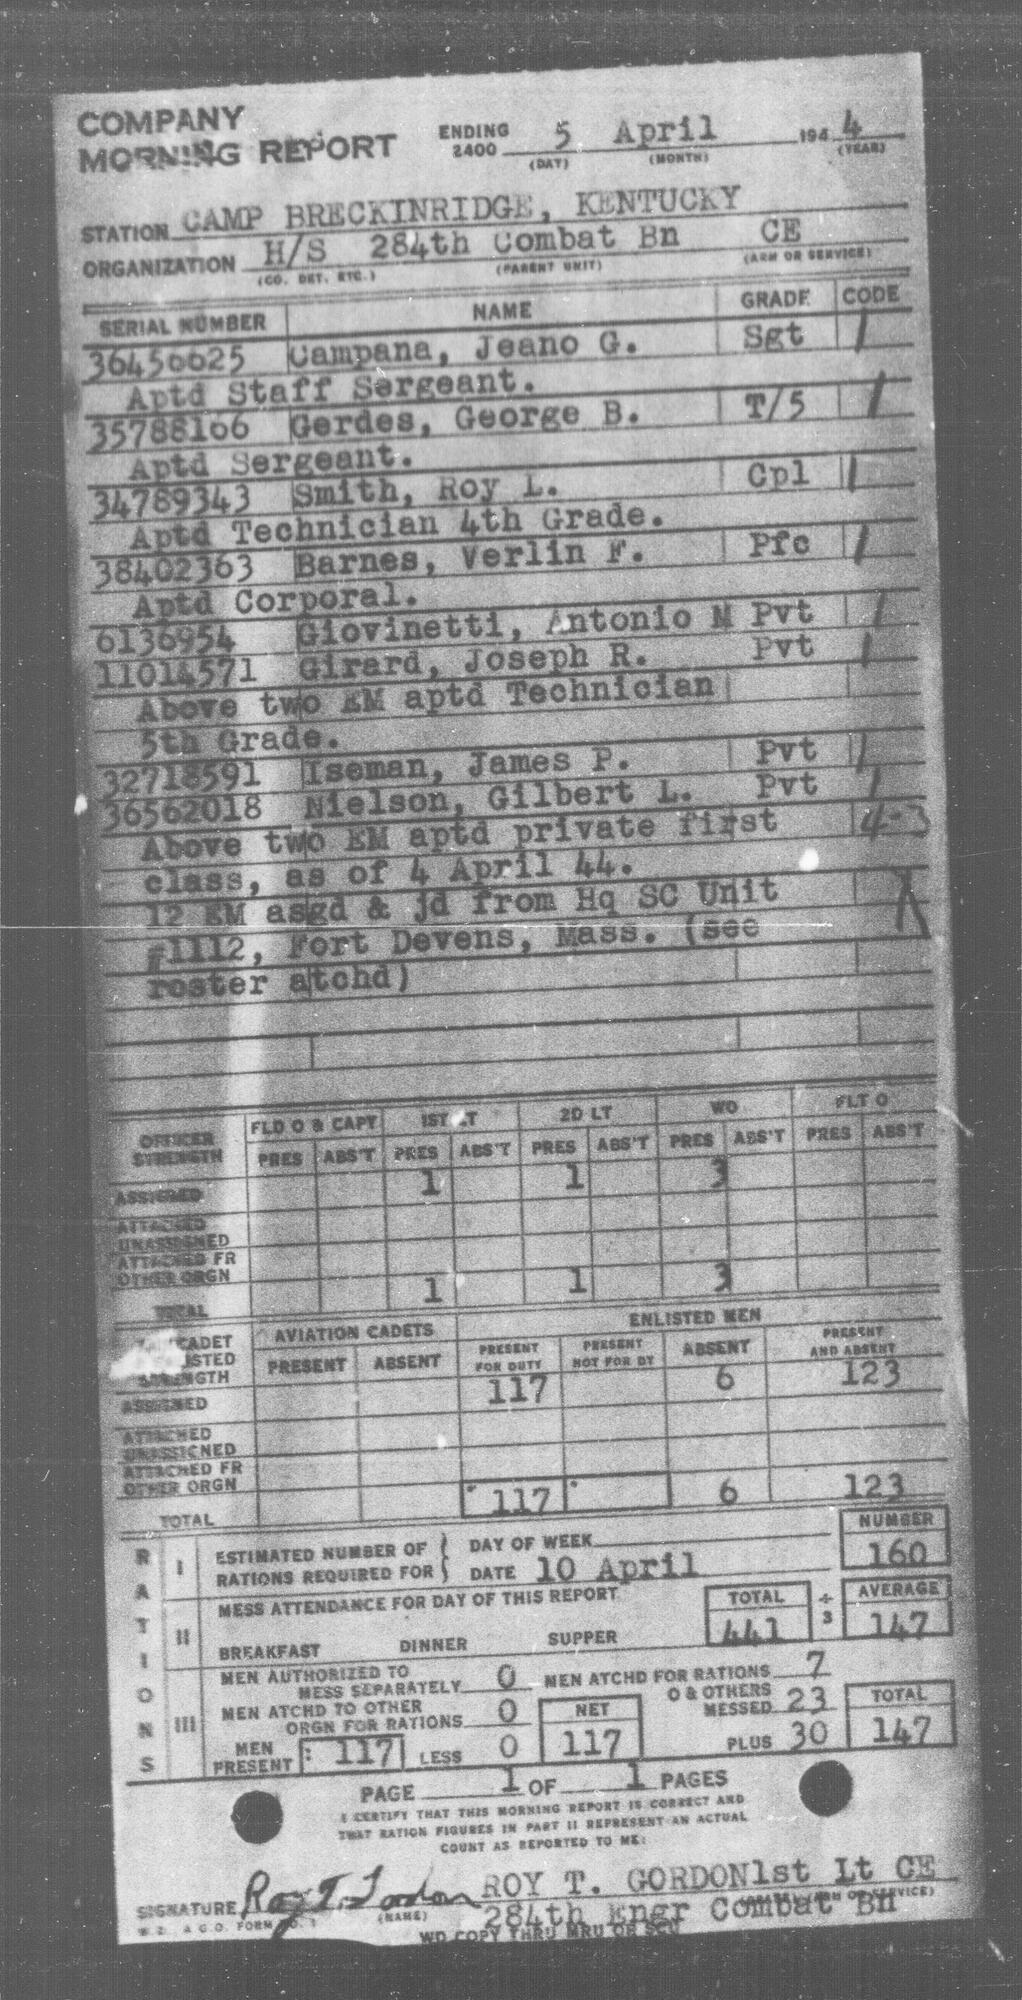 COMPANY
MORNING REPORT
ENDING 2400 5 April 1944
(DAY) (MONTH) (YEAR)
STATION CAMP BRECKINRIDGE, KENTUCKY
ORGANIZATION H/S 284th Combat Bn CE
(CO. DET. ETC.) (PARENT UNIT) (ARM OR SERVICE)
SERIAL NUMBER NAME GRADE CODE
36450625 Campana, Jeano G. Sgt /
Aptd Staff Sergeant.
35788166 Gerdes, George B. T/5 /
Aptd Sergeant.
34789343 Smith, Roy L. Cpl /
Aptd Technician 4th Grade.
38402363 Barnes, Verlin F. Pfc /
Aptd Corporal.
6136954 Giovinetti, Antonio M Pvt /
11014571 Girard, Joseph R. Pvt /
Above two EM aptd Technician
5th Grade.
32718591 Iseman, James P. Pvt /
36562018 Nielson, Gilbert L. Pvt /
Above two EM aptd private first 4-3
class, as of 4 April 44.
12 EM asgd & jd from Hq SC Unit
#1112, Fort Devens, Mass. (see
roster atchd)
OFFICER STRENGTH FLD O & CAPT 1ST LT 2D LT WO FLT O
PRES ABS'T PRES ABS'T PRES ABS'T PRES ABS'T PRES ABS'T
ASSIGNED 1 1 3
ATTACHED UNASSIGNED
ATTACHED FR OTHER ORGN
TOTAL 1 1 3
CADET STRENGTH AVIATION CADETS ENLISTED MEN
PRESENT ABSENT PRESENT FOR DUTY PRESENT NOT FOR DY ABSENT PRESENT AND ABSENT
ASSIGNED 117 6 123
ATTACHED UNASSIGNED
ATTACHED FR OTHER ORGN
TOTAL 117 6 123
RATIONS
I ESTIMATED NUMBER OF RATIONS REQUIRED FOR DAY OF WEEK
DATE 10 April NUMBER 160
II MESS ATTENDANCE FOR DAY OF THIS REPORT
BREAKFAST DINNER SUPPER TOTAL 441 ÷ 3 AVERAGE 147
III MEN AUTHORIZED TO MESS SEPARATELY 0 MEN ATCHD FOR RATIONS 7
MEN ATCHD TO OTHER ORGN FOR RATIONS 0 NET O & OTHERS MESSED 23 TOTAL
MEN PRESENT 117 LESS 0 117 PLUS 30 147
PAGE 1 OF 1 PAGES
I CERTIFY THAT THIS MORNING REPORT IS CORRECT AND
THAT RATION FIGURES IN PART II REPRESENT AN ACTUAL
COUNT AS REPORTED TO ME:
SIGNATURE Roy T. Gordon ROY T. GORDON 1st Lt CE
(NAME) 284th Engr Combat Bn
W.D. A.G.O. FORM NO. 1
WD COPY THRU MRU OR SCU